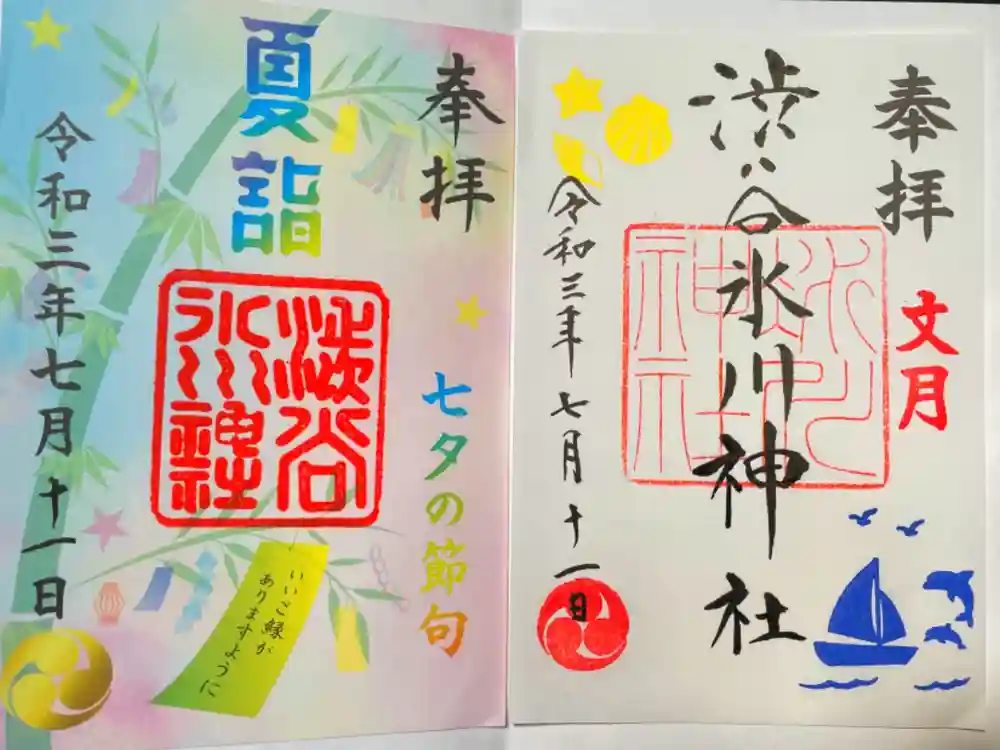 奉拝
文月
渋谷氷川神社
令和三年七月十一日
氷川
神社
奉拝
七夕の節句
夏詣
渋谷
氷川
神社
いいご縁が
ありますように
令和三年七月十一日